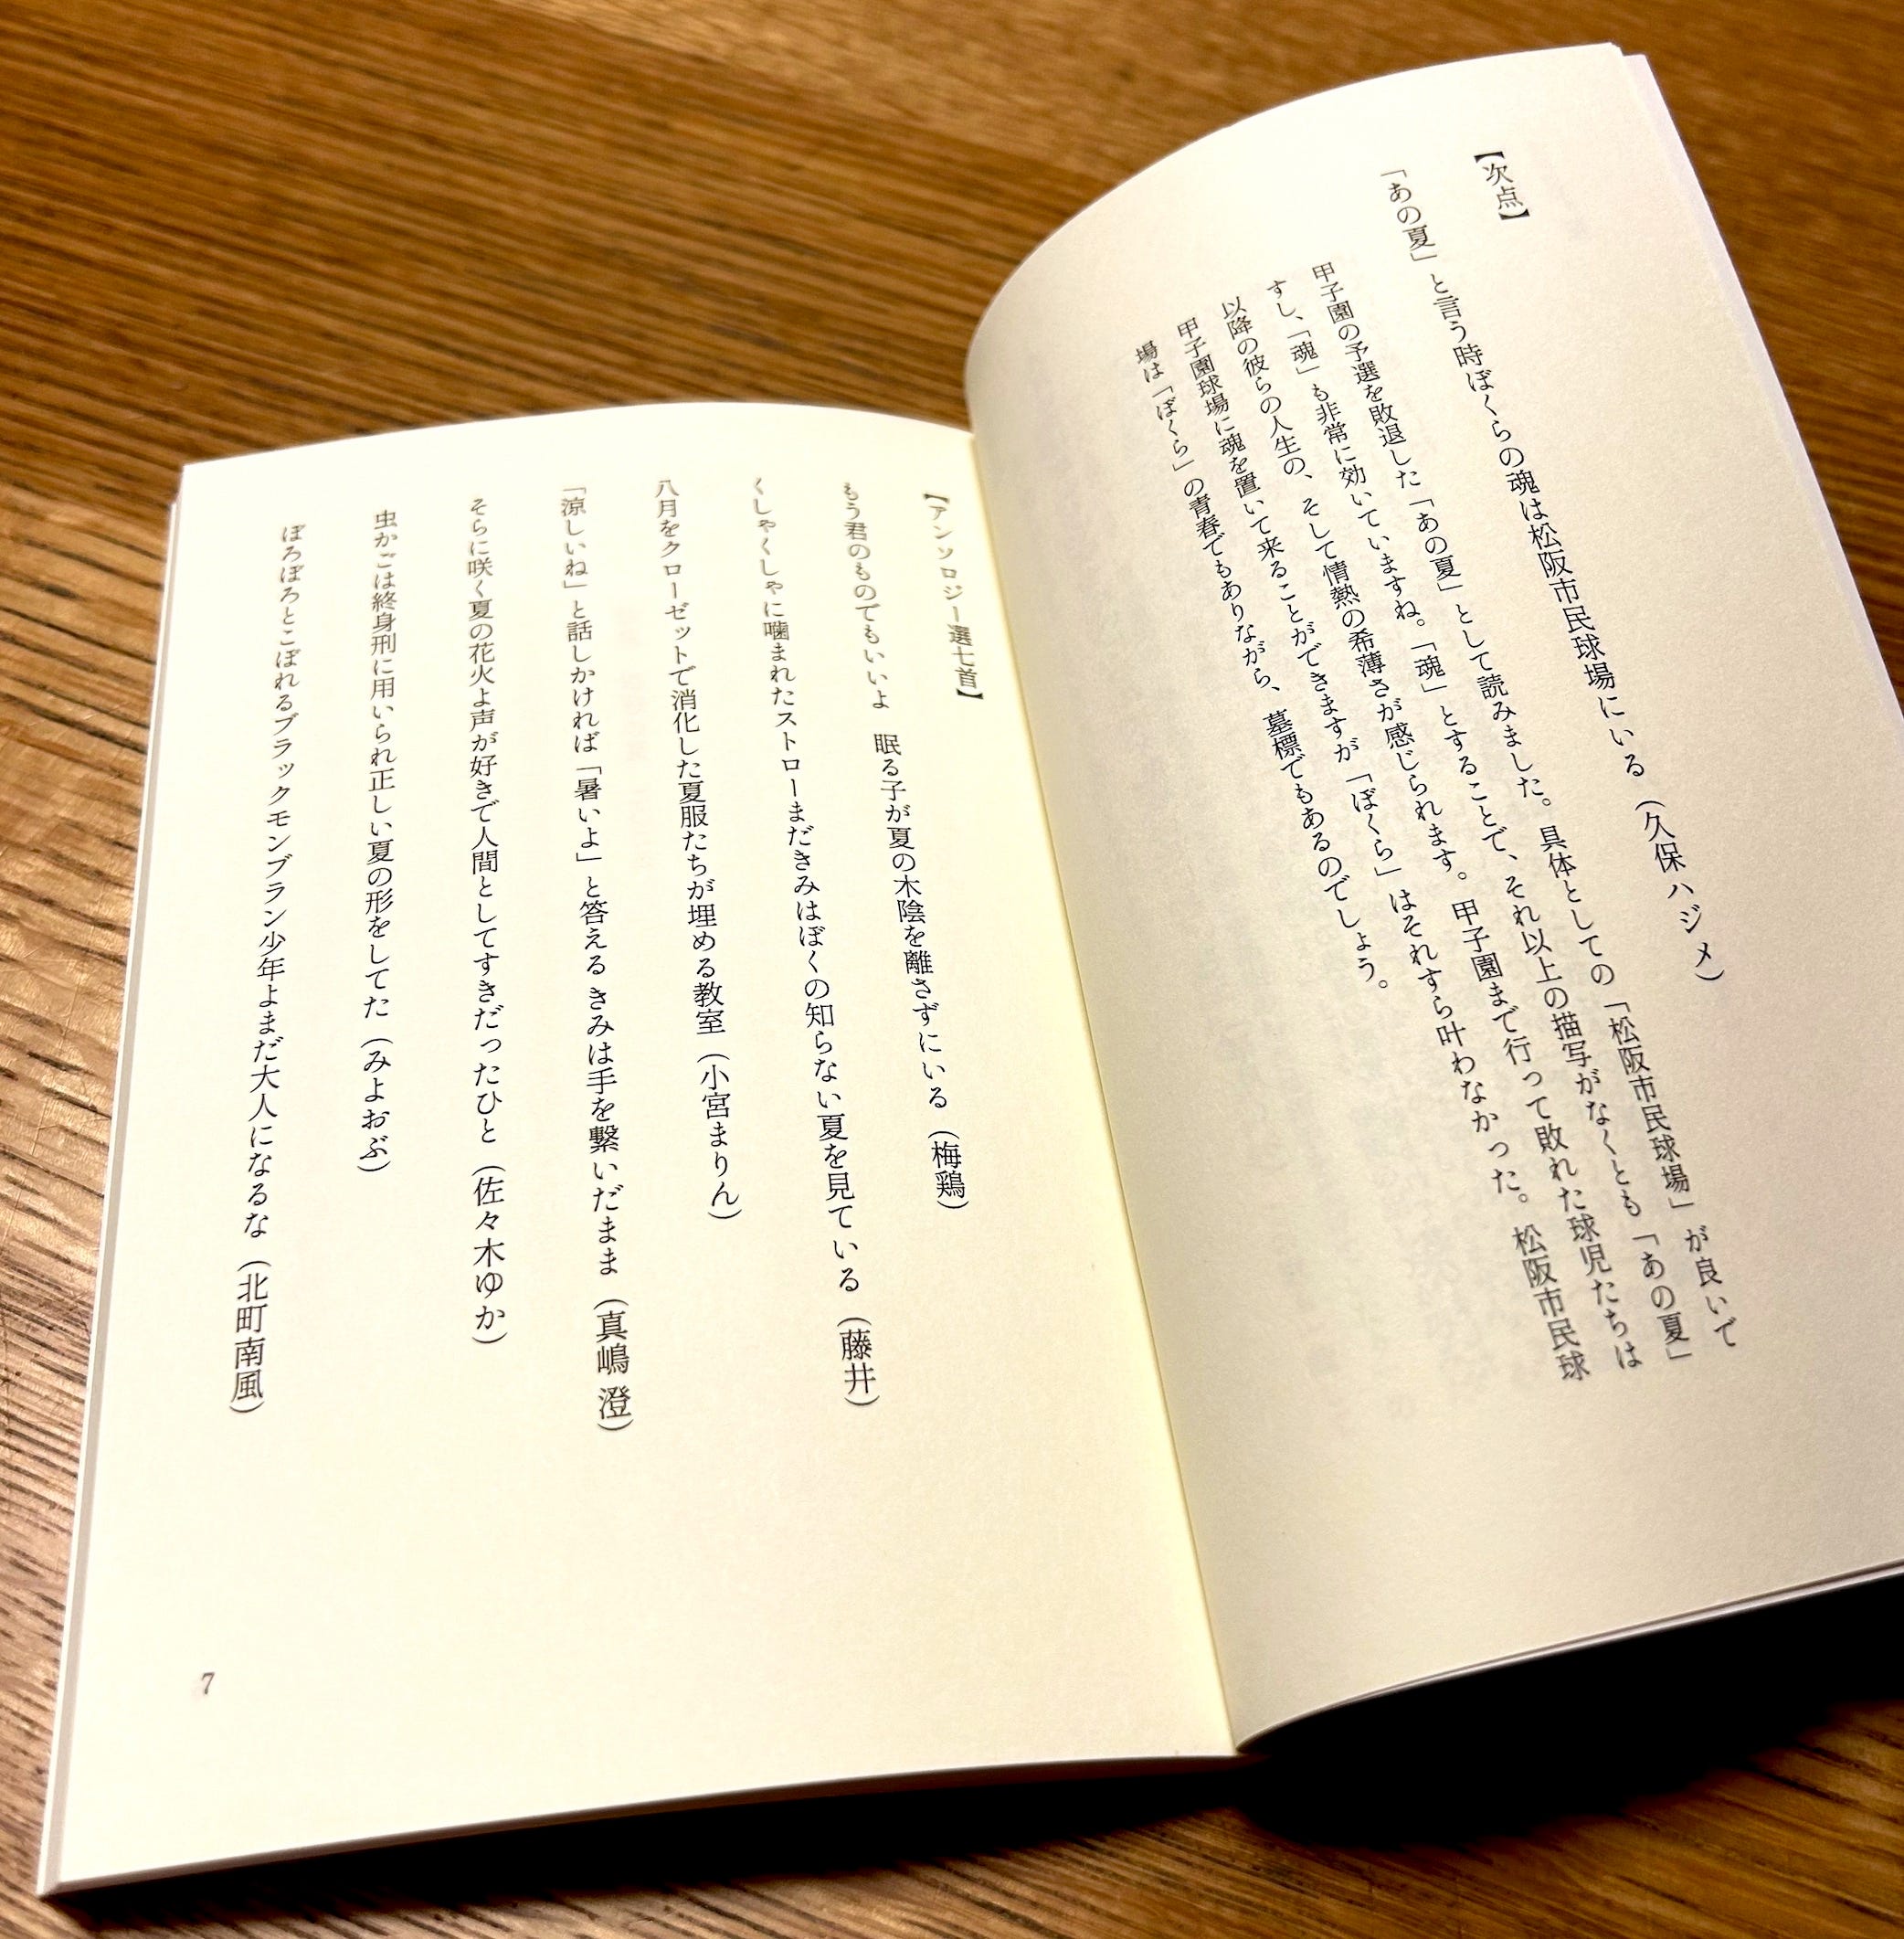 【次点】
「あの夏」と言う時ぼくらの魂は松阪市民球場にいる（久保ハジメ）
甲子園の予選を敗退した「あの夏」として読みました。具体としての「松阪市民球場」が良いで
すし、「魂」も非常に効いていますね。「魂」とすることで、それ以上の描写がなくとも「あの夏」
以降の彼らの人生の、そして情熱の希薄さが感じられます。甲子園まで行って敗れた球児たちは
甲子園球場に魂を置いて来ることができますが「ぼくら」はそれすら叶わなかった。松阪市民球
場は「ぼくら」の青春でもありながら、墓標でもあるのでしょう。
【アンソロジー選七首】
もう君のものでもいいよ　眠る子が夏の木陰を離さずにいる（梅鶏）
くしゃくしゃに噛まれたストローまだきみはぼくの知らない夏を見ている（藤井）
八月をクローゼットで消化した夏服たちが埋める教室（小宮まりん）
「涼しいね」と話しかければ「暑いよ」と答える きみは手を繋いだまま（真嶋 澄）
そらに咲く夏の花火よ声が好きで人間としてすきだったひと（佐々木ゆか）
虫かごは終身刑に用いられ正しい夏の形をしてた（みよおぶ）
ぼろぼろとこぼれるブラックモンブラン少年よまだ大人になるな（北町南風）
7